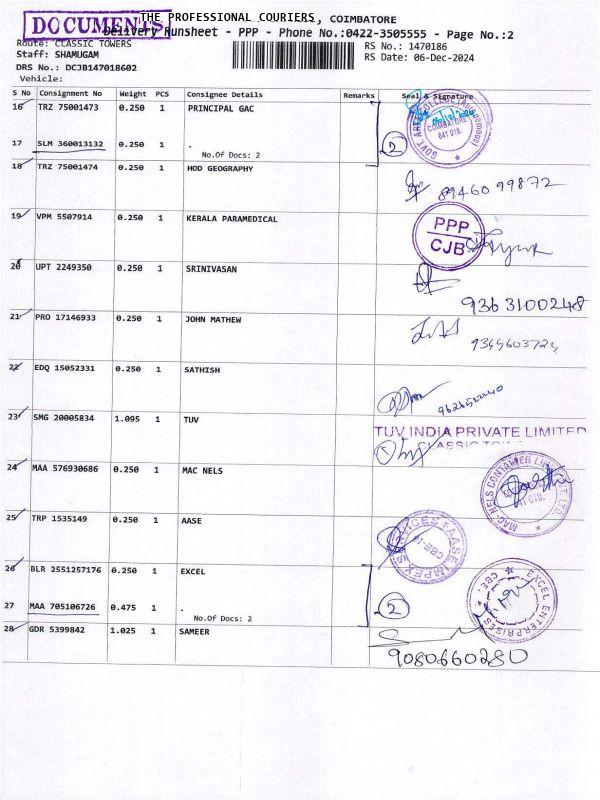 DOCUMENTS
THE PROFESSIONAL COURIERS, COIMBATORE
Delivery Runsheet - PPP - Phone No.:0422-3505555 - Page No.:2
Route: CLASSIC TOWERS
RS No.: 1470186
Staff: SHAMUGAM
RS Date: 06-Dec-2024
DRS No.: DCJB147018602
Vehicle:
S No Consignment No Weight PCS Consignee Details Remarks Seal & Signature
16 TRZ 75001473 0.250 1 PRINCIPAL GAC
17 SLM 360013132 0.250 1 .
No.Of Docs: 2
2
18 TRZ 75001474 0.250 1 HOD GEOGRAPHY
8946099872
19 VPM 5507914 0.250 1 KERALA PARAMEDICAL
PPP
CJB
20 UPT 2249350 0.250 1 SRINIVASAN
9363100248
21 PRO 17146933 0.250 1 JOHN MATHEW
22 EDQ 15052331 0.250 1 SATHISH
23 SMG 20005834 1.095 1 TUV
TUV INDIA PRIVATE LIMITED
24 MAA 576930686 0.250 1 MAC NELS
25 TRP 1535149 0.250 1 AASE
26 BLR 2551257176 0.250 1 EXCEL
EXCEL ENTERPRISES CBE
27 MAA 705106726 0.475 1 .
No.Of Docs: 2
2
28 GDR 5399842 1.025 1 SAMEER
9080660280